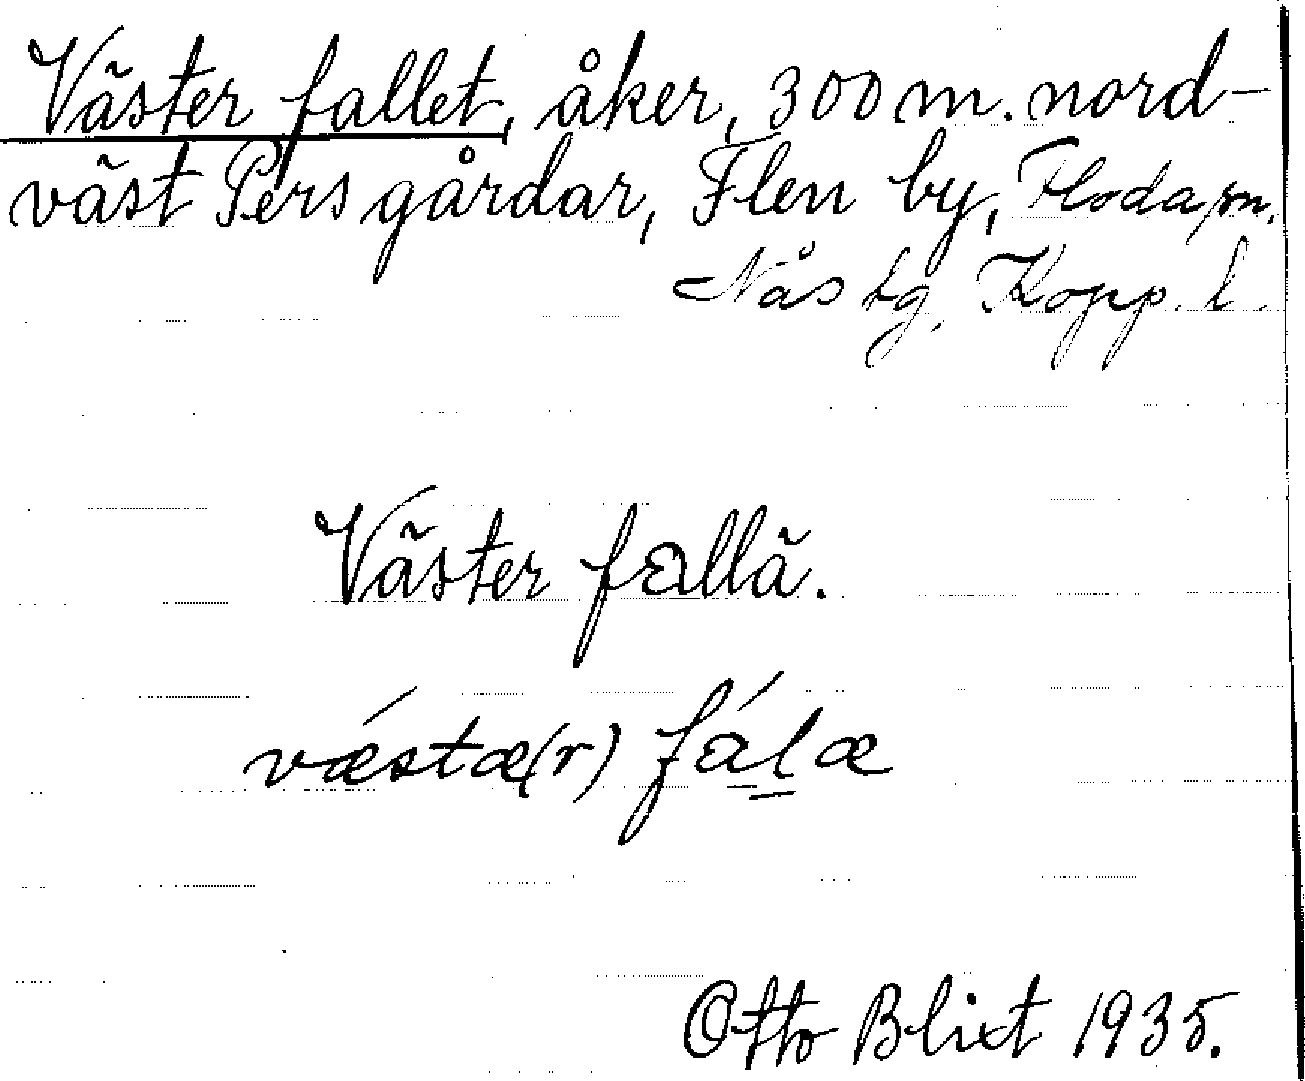 Väster fallet, åker, 300 m. nord-
väst Pers gårdar, Flen by, Floda sn,
Nås tg, Kopp. l.
Väster fallä.
vǽstæ(r) fálæ
Otto Blixt 1935.